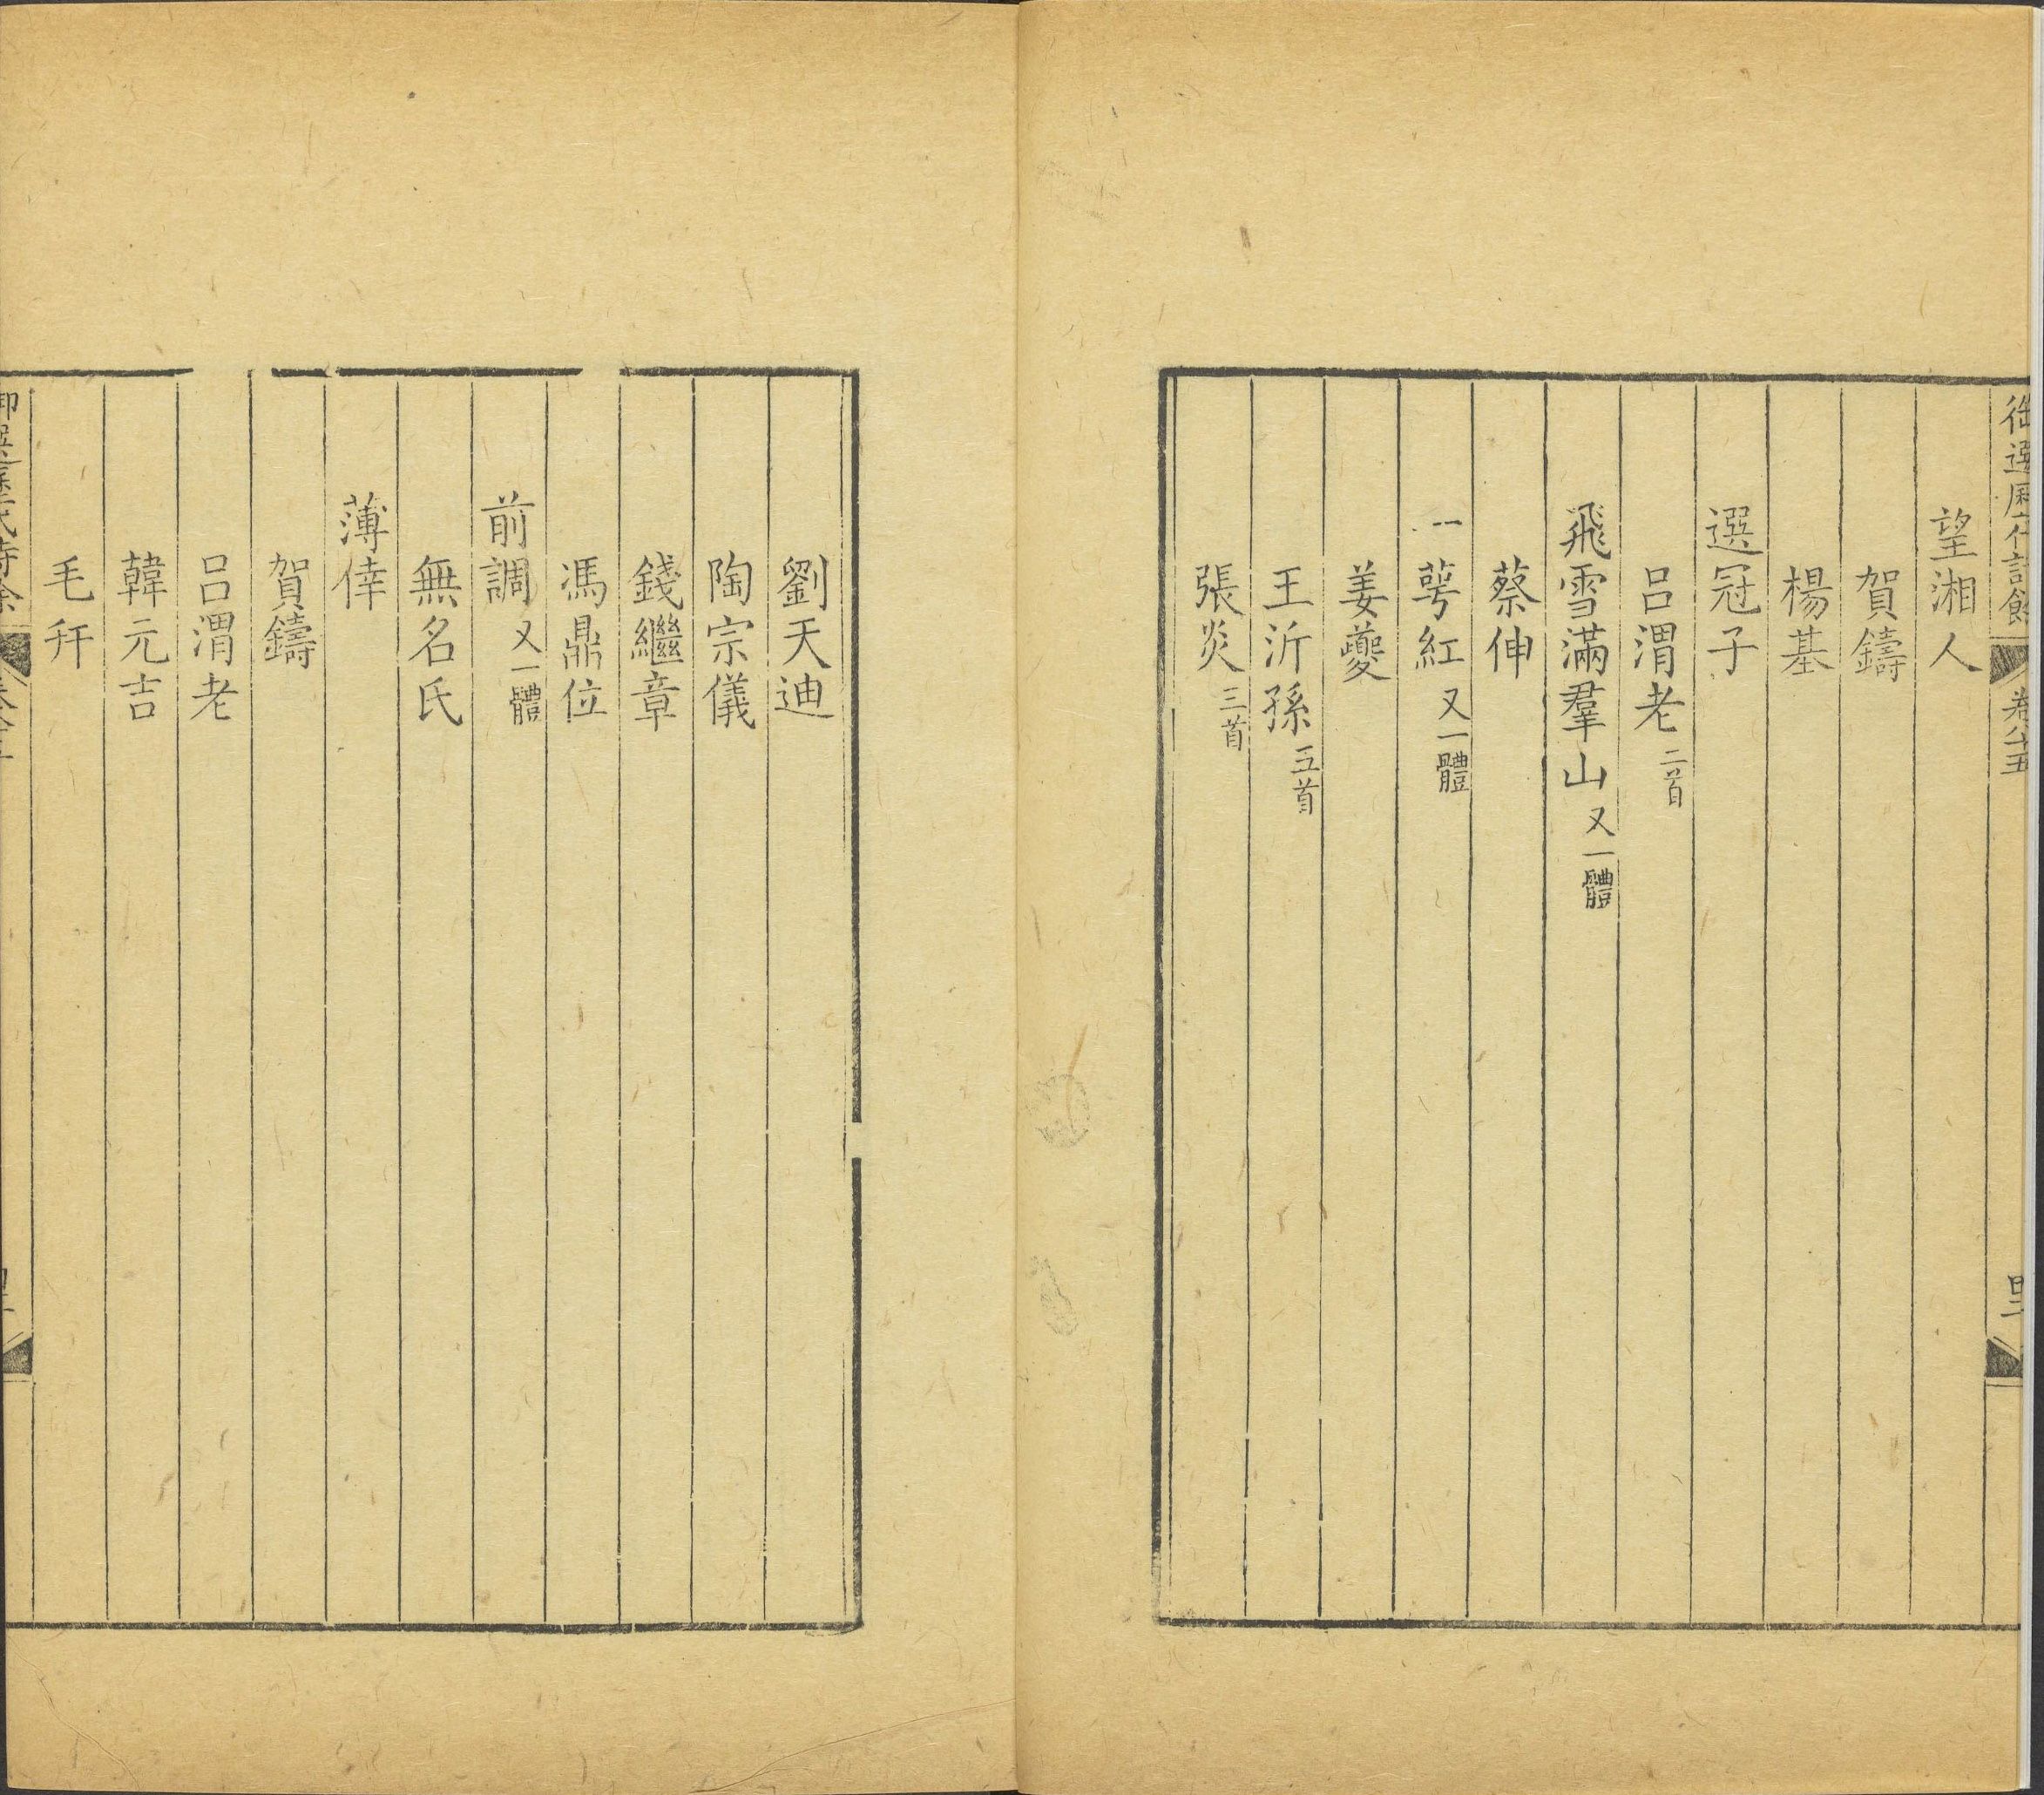 御選歷代詩餘 卷八十五
望湘人
賀鑄
楊基
選冠子
呂渭老 二首
飛雪滿羣山 又一體
蔡伸
一萼紅 又一體
姜夔
王沂孫 五首
張炎 三首
劉天迪
陶宗儀
錢繼章
馮鼎位
前調 又一體
無名氏
薄倖
賀鑄
呂渭老
韓元吉
毛幵
御選歷代詩餘